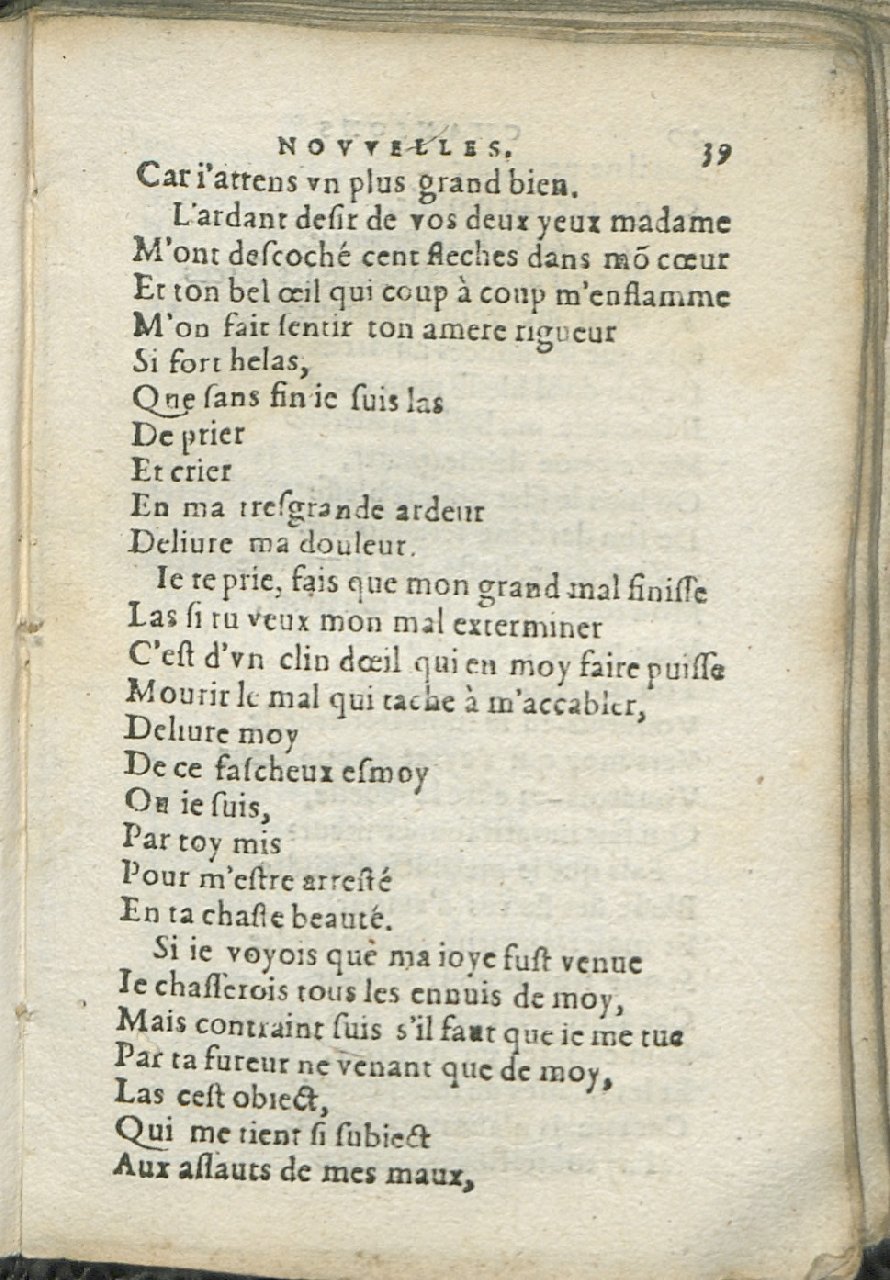 NOVVELLES. 39
Car i'attens vn plus grand bien.
L'ardant desir de vos deux yeux madame
M'ont descoché cent fleches dans mõ cœur
Et ton bel œil qui coup à coup m'enflamme
M'on fait sentir ton amere rigueur
Si fort helas,
Que sans fin ie suis las
De prier
Et crier
En ma tresgrande ardeur
Deliure ma douleur.
Ie te prie, fais que mon grand mal finisse
Las si tu veux mon mal exterminer
C'est d'vn clin dœil qui en moy faire puisse
Mourir le mal qui tache à m'accabler,
Deliure moy
De ce fascheux esmoy
Ou ie suis,
Par toy mis
Pour m'estre arresté
En ta chaste beauté.
Si ie voyois que ma ioye fust venue
Ie chasserois tous les ennuis de moy,
Mais contraint suis s'il faut que ie me tue
Par ta fureur ne venant que de moy,
Las cest obiect,
Qui me tient si subiect
Aux assauts de mes maux,